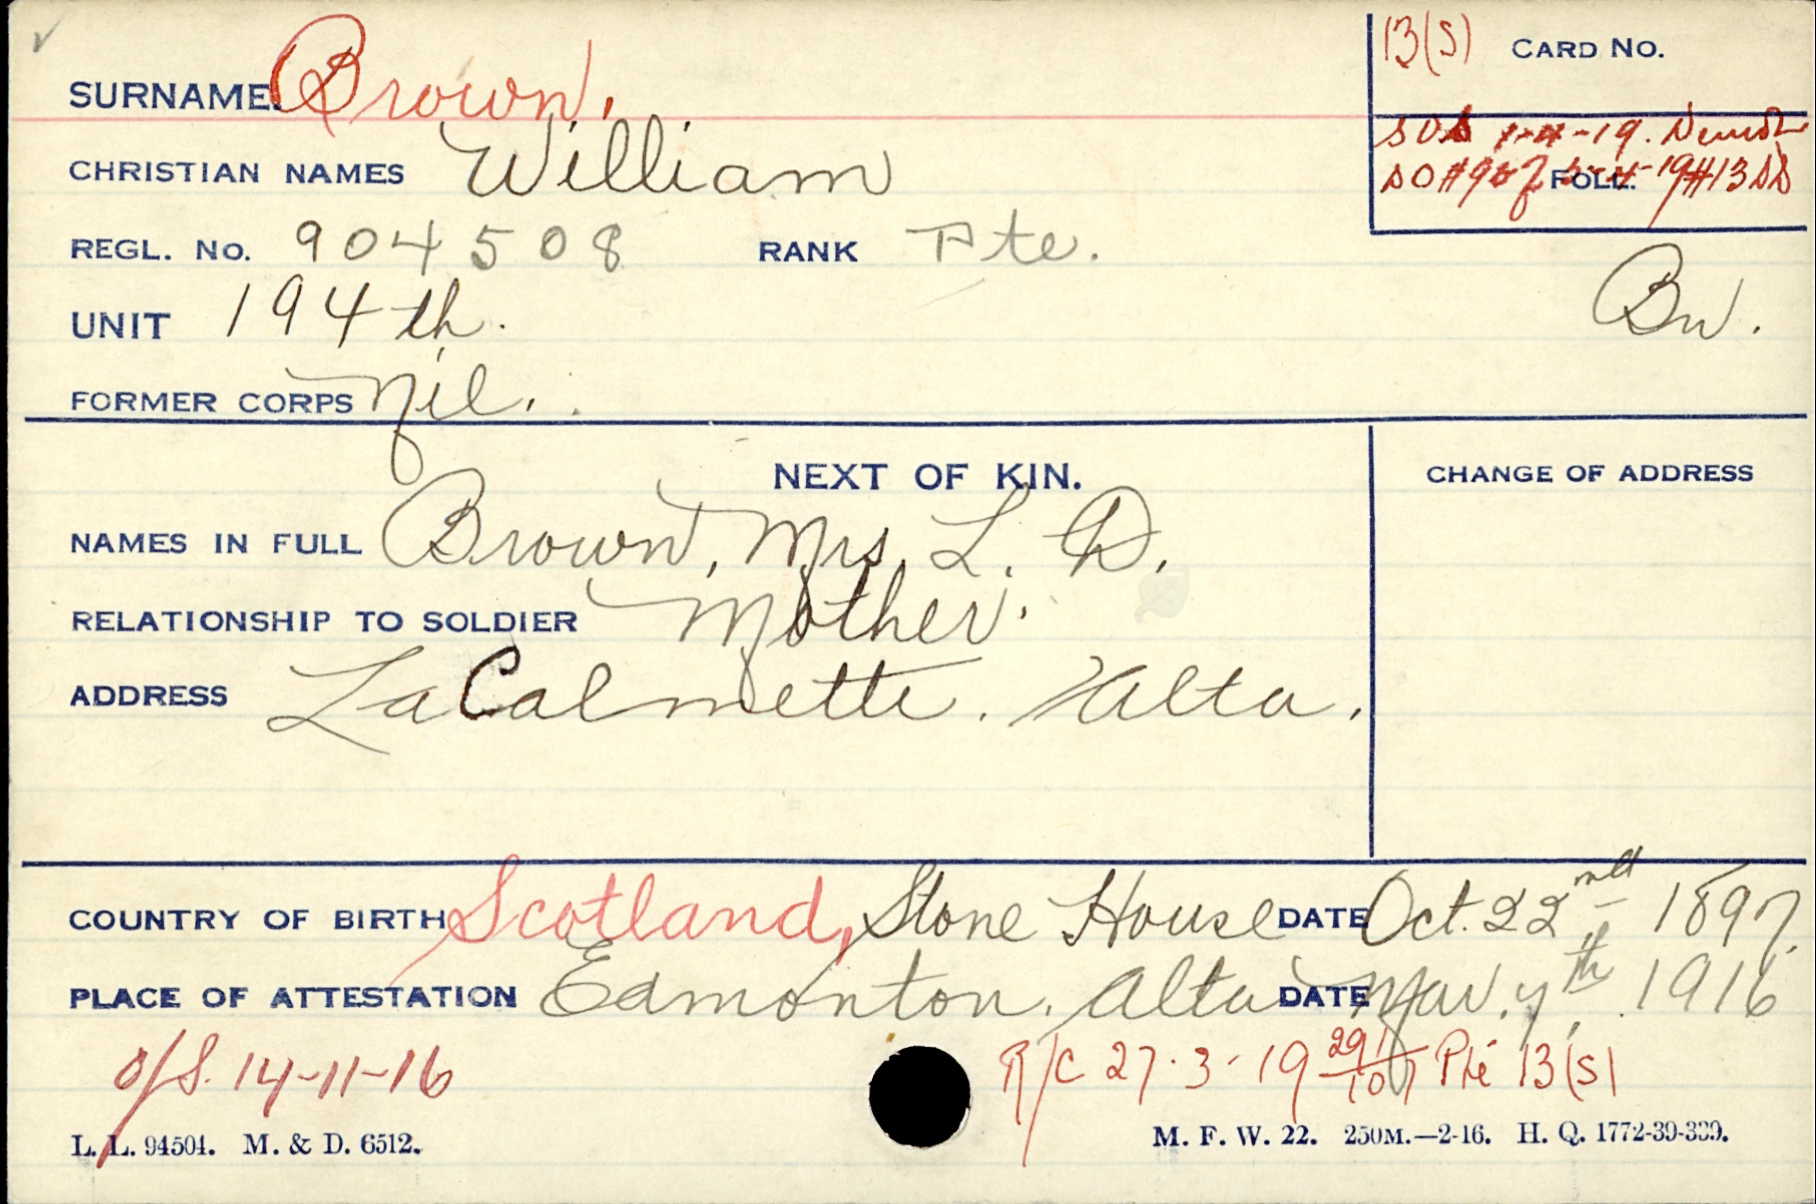 SURNAME. Brown.
13(S) CARD NO.
CHRISTIAN NAMES William
SOS -19.
FOLL. 13
REGL. No. 904508 RANK Pte.
UNIT 194th.
Bw.
FORMER CORPS Nil.
NEXT OF KIN.
CHANGE OF ADDRESS
NAMES IN FULL Brown, Mrs L. D.
RELATIONSHIP TO SOLDIER Mother.
ADDRESS LaCalmette. Alta.
COUNTRY OF BIRTH Scotland, Stone House DATE Oct. 22nd 1897.
PLACE OF ATTESTATION Edmonton. Alta DATE Mar. 7th. 1916
O/S. 14-11-16
R/C 27.3-19 291/107 Pte 13(S)
L. L. 94504. M. & D. 6512.
M. F. W. 22. 250M.—2-16. H. Q. 1772-39-339.